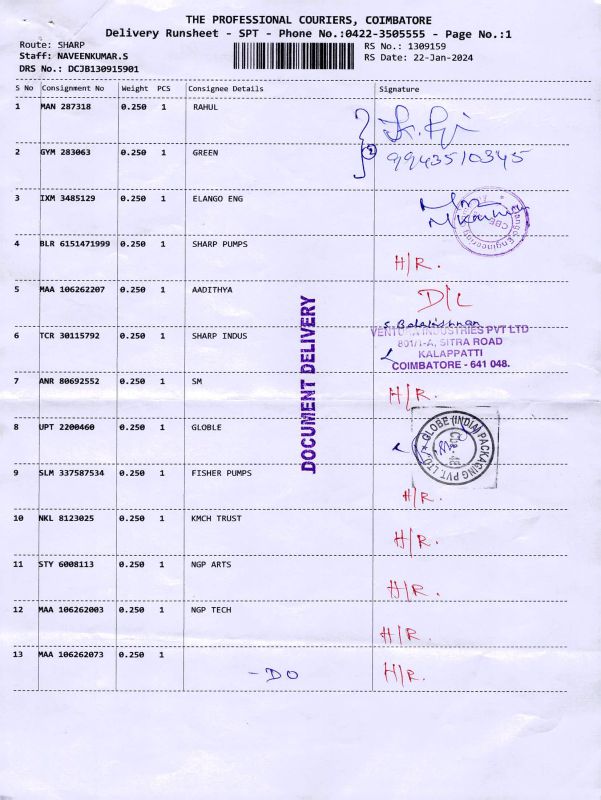 THE PROFESSIONAL COURIERS, COIMBATORE
Delivery Runsheet - SPT - Phone No.:0422-3505555 - Page No.:1
Route: SHARP
RS No.: 1309159
Staff: NAVEENKUMAR.S
RS Date: 22-Jan-2024
DRS No.: DCJB130915901
S No Consignment No Weight PCS Consignee Details Signature
1 MAN 287318 0.250 1 RAHUL
2 GYM 283063 0.250 1 GREEN 2 9943510345
3 IXM 3485129 0.250 1 ELANGO ENG
4 BLR 6151471999 0.250 1 SHARP PUMPS H/R.
5 MAA 106262207 0.250 1 AADITHYA D/L
DOCUMENT DELIVERY
S. Balakrishnan
VENTURA INDUSTRIES PVT LTD
6 TCR 30115792 0.250 1 SHARP INDUS 801/1-A, SITRA ROAD
KALAPPATTI
COIMBATORE - 641 048.
7 ANR 80692552 0.250 1 SM H/R.
8 UPT 2200460 0.250 1 GLOBLE GLOBE (INDIA) PACKAGING PVT. LTD.
9 SLM 337587534 0.250 1 FISHER PUMPS H/R.
10 NKL 8123025 0.250 1 KMCH TRUST H/R.
11 STY 6008113 0.250 1 NGP ARTS H/R.
12 MAA 106262003 0.250 1 NGP TECH H/R.
13 MAA 106262073 0.250 1 - DO H/R.